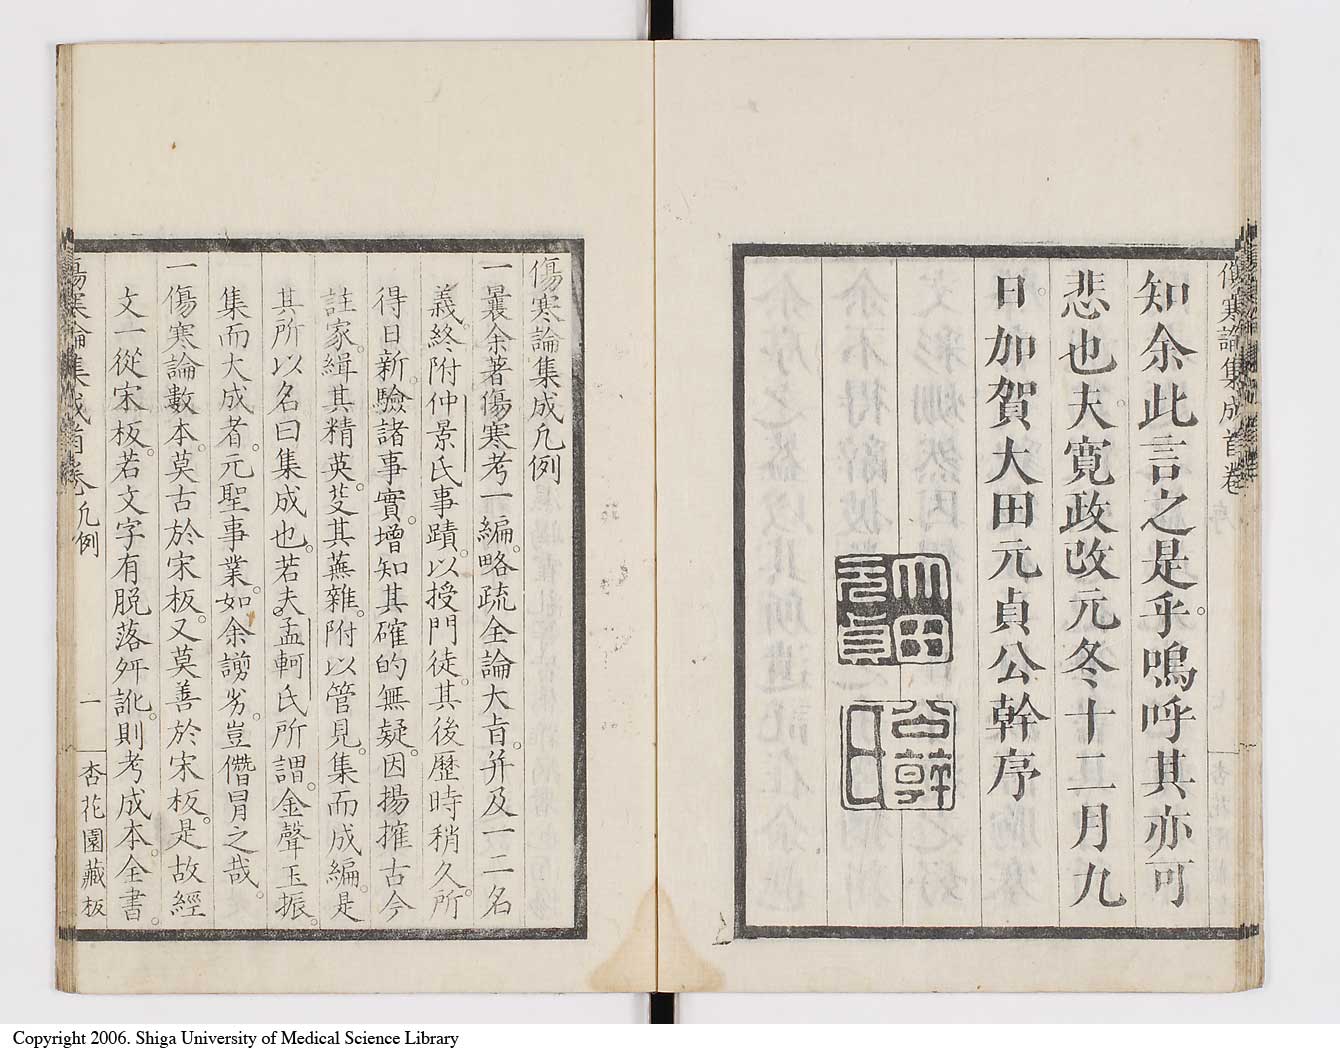 傷寒論集成首卷
知余此言之是乎。嗚呼其亦可
悲也。夫寛政改元冬十二月九
日。加賀大田元貞公幹序
大田元貞
公幹氏
傷寒論集成凡例
一曩余著傷寒考一編。略疏全論大旨。并及一二名
義。終附仲景氏事蹟。以授門徒。其後歷時稍久。所
得日新。驗諸事實。增知其確的無疑。因揚搉古今
註家。緝其精英。芟其蕪雜。附以管見。集而成編。是
其所以名曰集成也。若夫孟軻氏所謂。金聲玉振。
集而大成者。元聖事業。如余謭劣。豈僭冒之哉。
一傷寒論數本。莫古於宋板。又莫善於宋板。是故經
文一從宋板。若文字有脫落舛訛。則考成本。全書。
傷寒論集成首卷 凡例 一 杏花園藏板